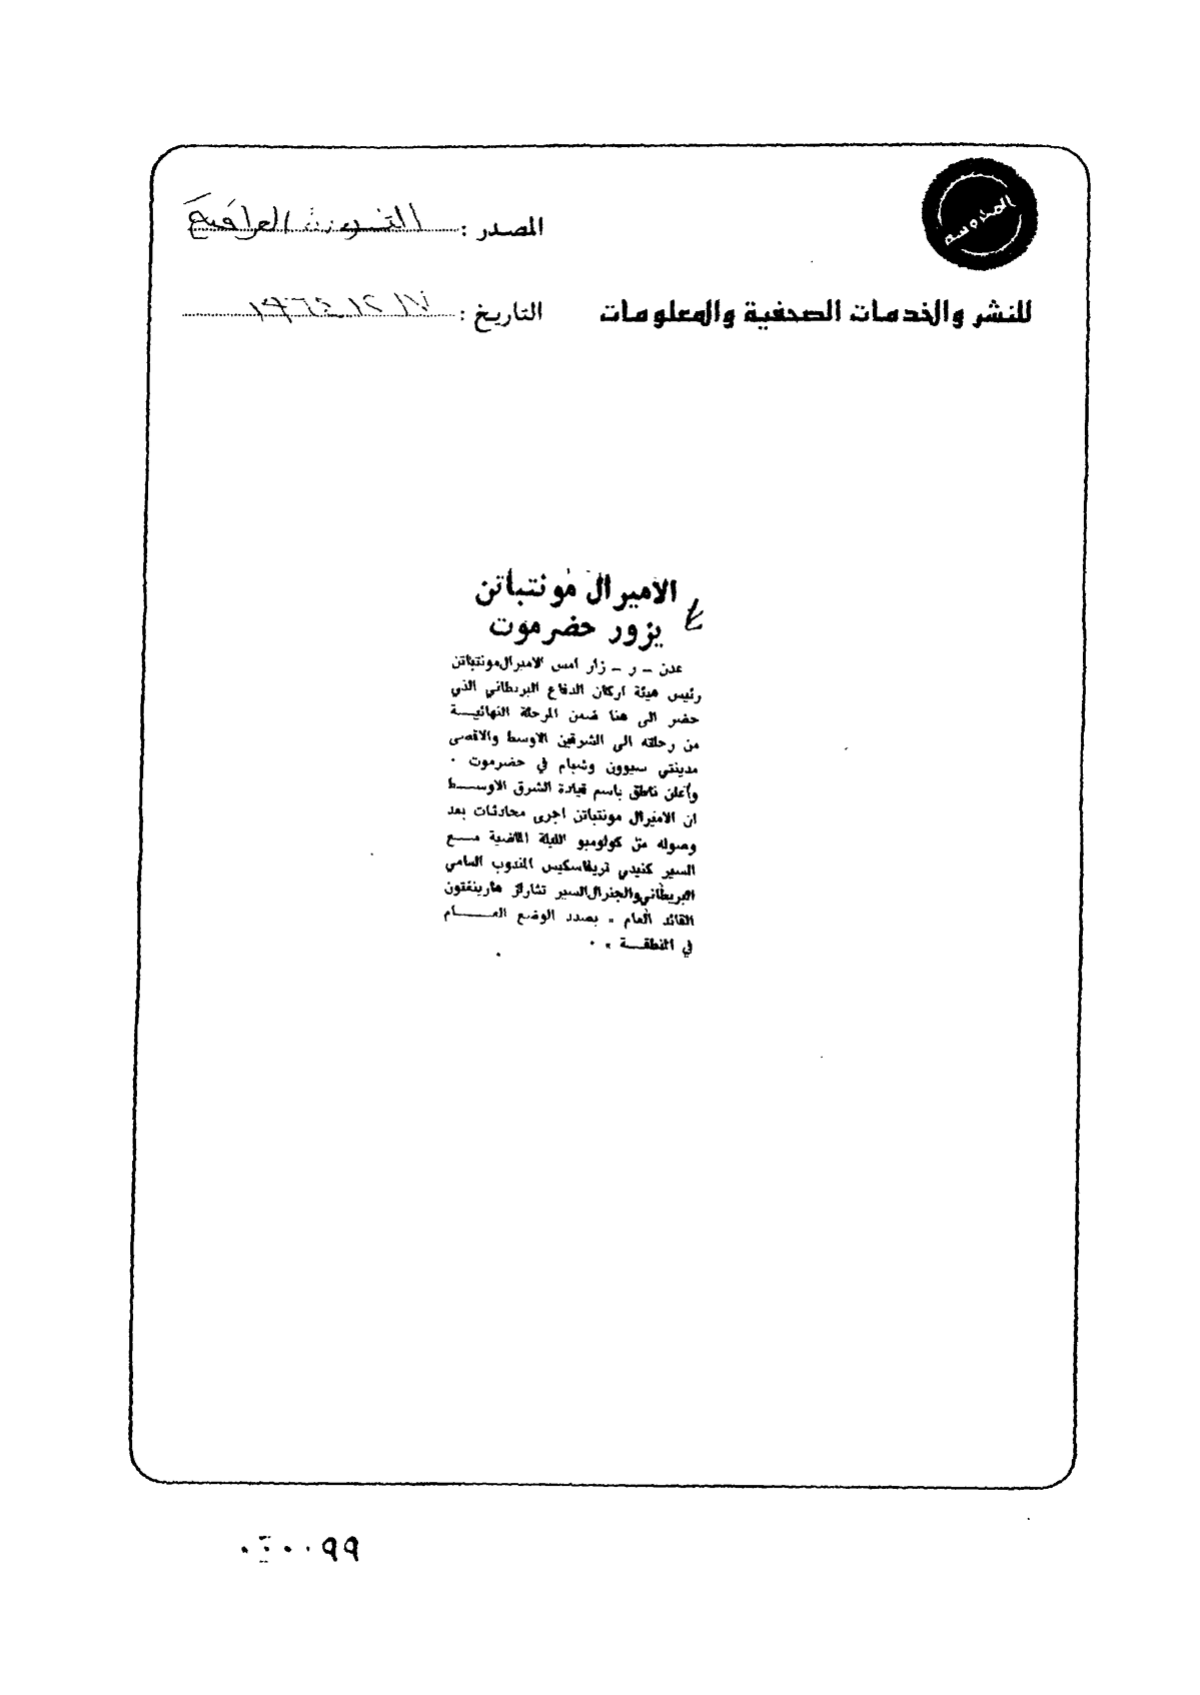 المصدر :
للنشر والخدمات الصحفية والمعلومات
التاريخ :
الاميرال مونتباتن
يزور حضرموت
عدن – ر – زار امس الاميرال مونتباتن
رئيس هيئة اركان الدفاع البريطاني الذي
حضر الى هنا ضمن المرحلة النهائيــة
من رحلته الى الشرقين الاوسط والاقصى
مدينتي سيوون وشبام في حضرموت .
وأعلن ناطق باسم قيادة الشرق الاوســط
ان الاميرال مونتباتن اجرى محادثات بعد
وصوله من كولومبو الليلة الماضية مــع
السير كنيدي تريفاسكيس المندوب السامي
البريطاني والجنرال السير تشارلز هارينغتون
القائد العام « بصدد الوضع العــــام
في المنطقــة » .